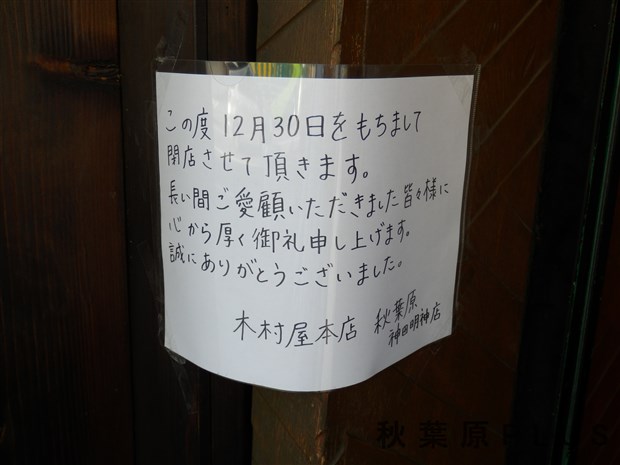 この度 12月30日をもちまして
閉店させて頂きます。
長い間ご愛顧いただきました皆々様に
心から厚く御礼申し上げます。
誠にありがとうございました。
木村屋本店 秋葉原
神田明神店
秋葉原PLUS